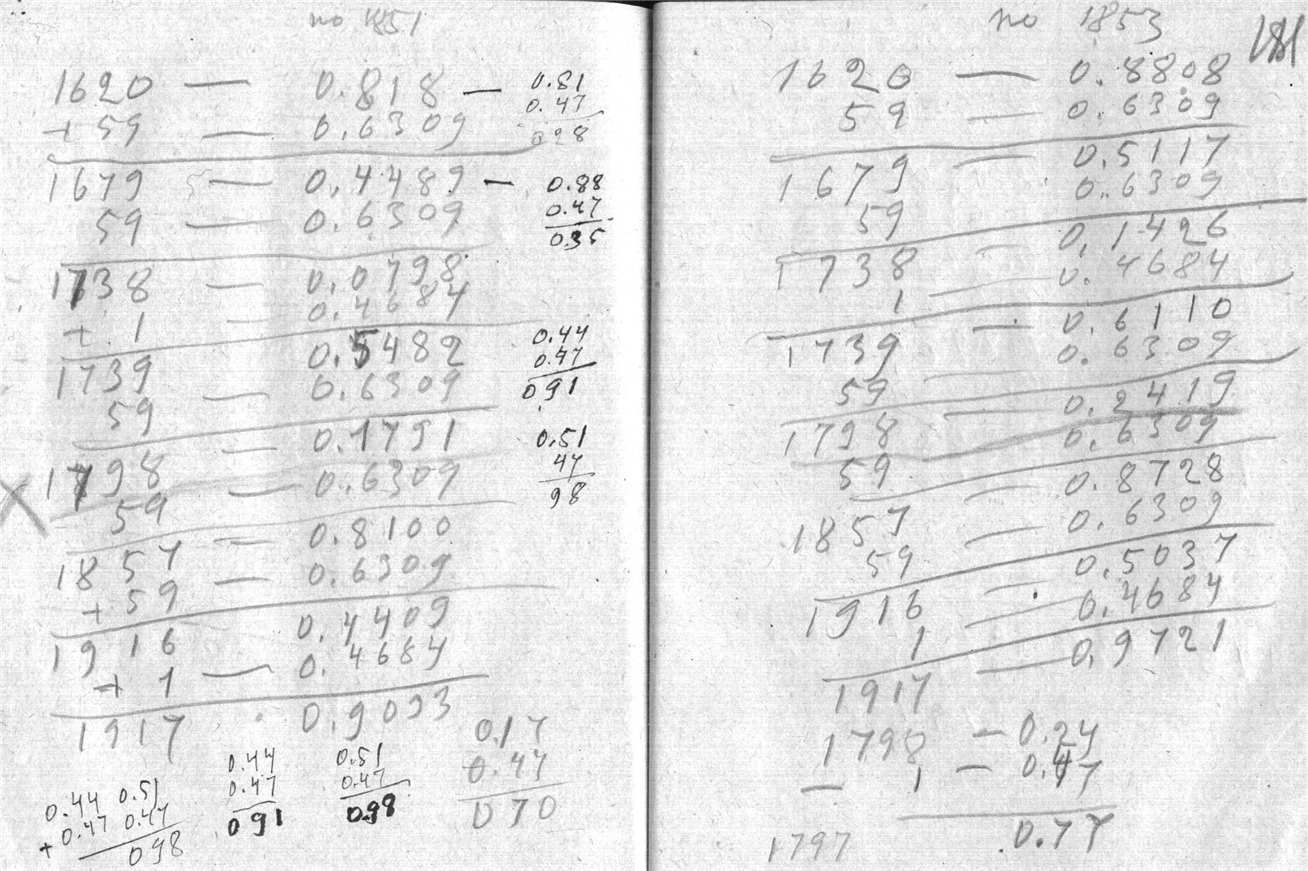 no 1851
1620 — 0.818 — 0.81
0.47
+ 59 — 0.6309 0.28
1679 — 0.4489 — 0.88
59 — 0.6309 0.47
0.35
1738 — 0.0798
+ 1 — 0.4684
1739 0.5482 0.44
0.47
59 — 0.6309 0.91
1798 — 0.1791 0.51
59 — 0.6309 47
98
1857 — 0.8100
+ 59 — 0.6309
1916 0.4409
+ 1 — 0.4684
1917 0.9093
0.17
0.47
0.70
0.44 0.51
+ 0.47 0.47
0.98
0.44
0.47
0.91
0.51
0.47
0.98
no 1853
181
1620 — 0.8808
59 — 0.6309
1679 — 0.5117
59 0.6309
1738 — 0.1426
1 — 0.4684
1739 — 0.6110
59 — 0.6309
1798 — 0.2419
59 0.6309
1857 — 0.8728
59 — 0.6309
1916 — 0.5037
1 — 0.4684
1917 — 0.9721
1798 — 0.24
— 1 — 0.47
1797 0.77